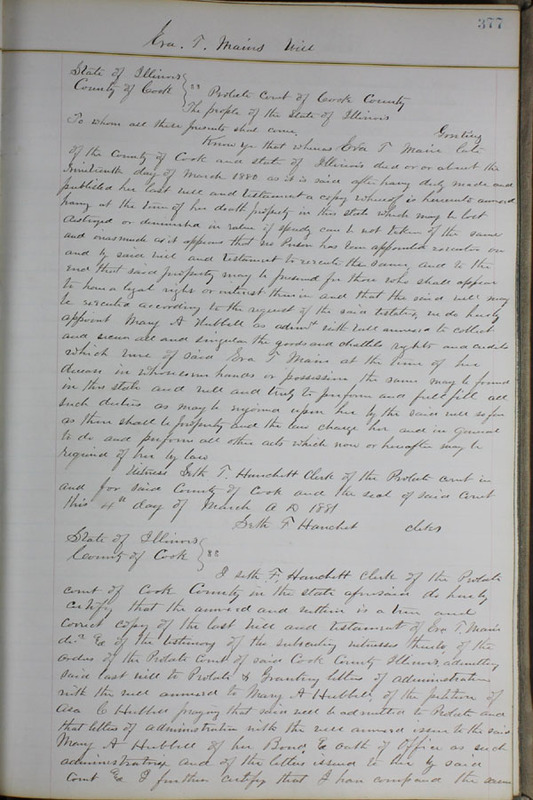 377
Eva. T. Mains Will
State of Illinois
County of Cook } ss Probate Court of Cook County
The people of the State of Illinois
To whom all these presents shall come, Greeting
Know ye that whereas Eva T Mains late
of the County of Cook and state of Illinois died on or about the
Nineteenth day of March 1880 as it is said after having duly made and
published her last will and testament a copy whereof is hereunto annexed
having at the time of her death property in this state which may be lost
destroyed or diminished in value if speedy care be not taken of the same
and inasmuch as it appears that no Person has been appointed executor in
and by said will and testament to execute the same, and to the
end that said property may be preserved for those who shall appear
to have a legal right or interest therein and that the said will may
be executed according to the request of the said testatrix, we do hereby
appoint Mary A Hubbell as admr with will annexed to collect
and secure all and singular the goods and chattels rights and credits
which were of said Eva T Mains at the time of her
decease in whosesoever hands or possession the same may be found
in this state and well and truly to perform and fulfill all
such duties as may be enjoined upon her by the said will so far
as there shall be property and the law charge her and in general
to do and perform all other acts which now or hereafter may be
required of her by law
Witness Seth F Hanchett Clerk of the Probate court in
and for said County of Cook and the seal of said Court
this 4th day of March A D 1881
Seth F Hanchet Clerk
State of Illinois
County of Cook } ss
I Seth F. Hanchett Clerk of the Probate
court of Cook County in the state aforesaid do hereby
certify that the annexed and within is a true and
correct copy of the last will and testament of Eva T. Mains
decd of the testimony of the subscribing witnesses thereto, of the
order of the Probate Court of said Cook County Illinois, admitting
said last will to Probate & Granting letters of administration
with the will annexed to Mary A Hubbell, of the petition of
Asa C Hubbell praying that said will be admitted to Probate and
that letters of administration with the will annexed issue to the said
Mary A Hubbell of her Bond, & oath of Office as such
administratrix and of the letters issued to her by said
Court &c I further certify that I have compared the same